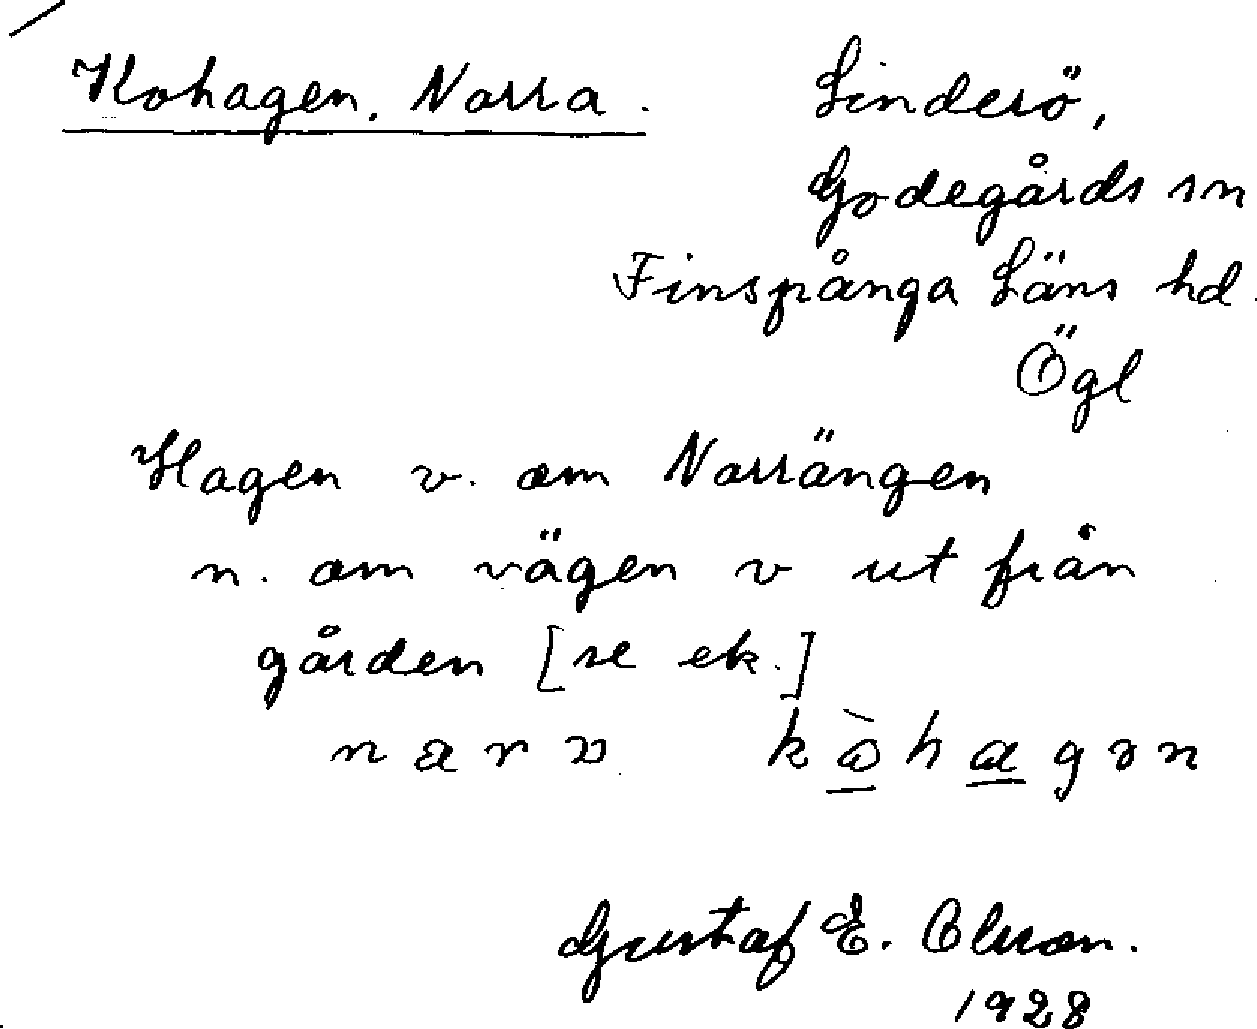 Kohagen, Norra. Linderö,
Godegårds sn
Finspånga Läns hd.
Ögl
Hagen v. om Norrängen
n. om vägen v ut från
gården [se ek.]
Gustaf E. Olsson.
1928